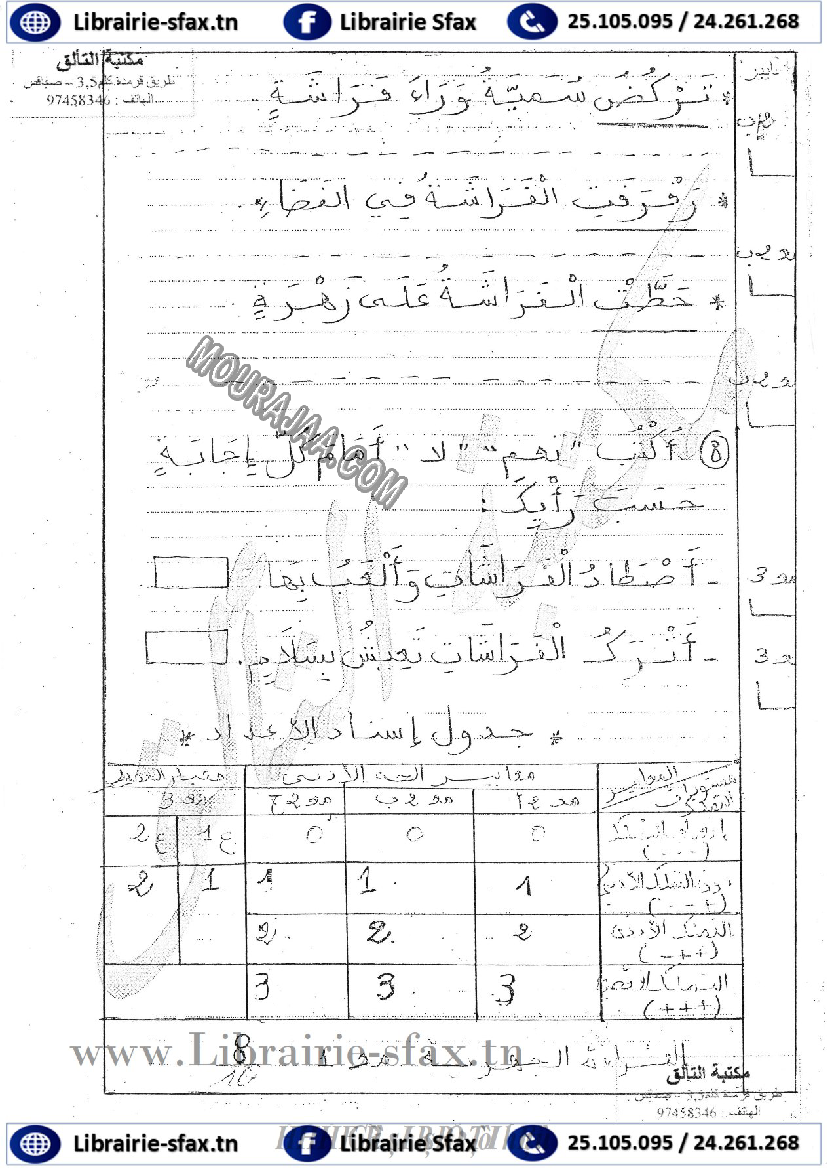 Librairie-sfax.tn Librairie Sfax 25.105.095 / 24.261.268
مكتبة التألق
طريق قرمدة كلم3,5 – صفاقس
الهاتف : 97458346
* تَرْكُضُ سُمَيَّةُ وَرَاءَ فَرَاشَةٍ
* رَفْرَفَتِ الْفَرَاشَةُ فِي الفَضَاءِ.
مع2ب
* حَطَّتْ الْفَرَاشَةُ عَلَى زَهْرَةٍ
مع2ب
MOURAJAA.COM
8 أَكْتُبُ "نعم" "لا" أَمَامَ كُلِّ إِجَابَةٍ
حَسَبَ رَأْيِكَ :
- أَصْطَادُ الْفَرَاشَاتِ وَأَلْعَبُ بِهَا
مع3
- أَتْرُكُ الْفَرَاشَاتِ تَعِيشُ بِسَلَامٍ.
مع3
* جدول إسناد الأعداد *
المعايير
مستويات التملك
معايير الحد الأدنى
مع2أ مع2ب مع2ج
مع3
0 0 0 1ع 2ع
(- - -)
دون التملك الأدنى 1 1 1 1 2
(+ - -)
التملك الأدنى 2 2 2
(++-)
التملك الأقصى 3 3 3
(+++)
القراءة الجهرية مع1
8
10
www.Librairie-sfax.tn
مكتبة التألق
طريق قرمدة كلم3,5 – صفاقس
الهاتف : 97458346
Librairie-sfax.tn Librairie Sfax 25.105.095 / 24.261.268